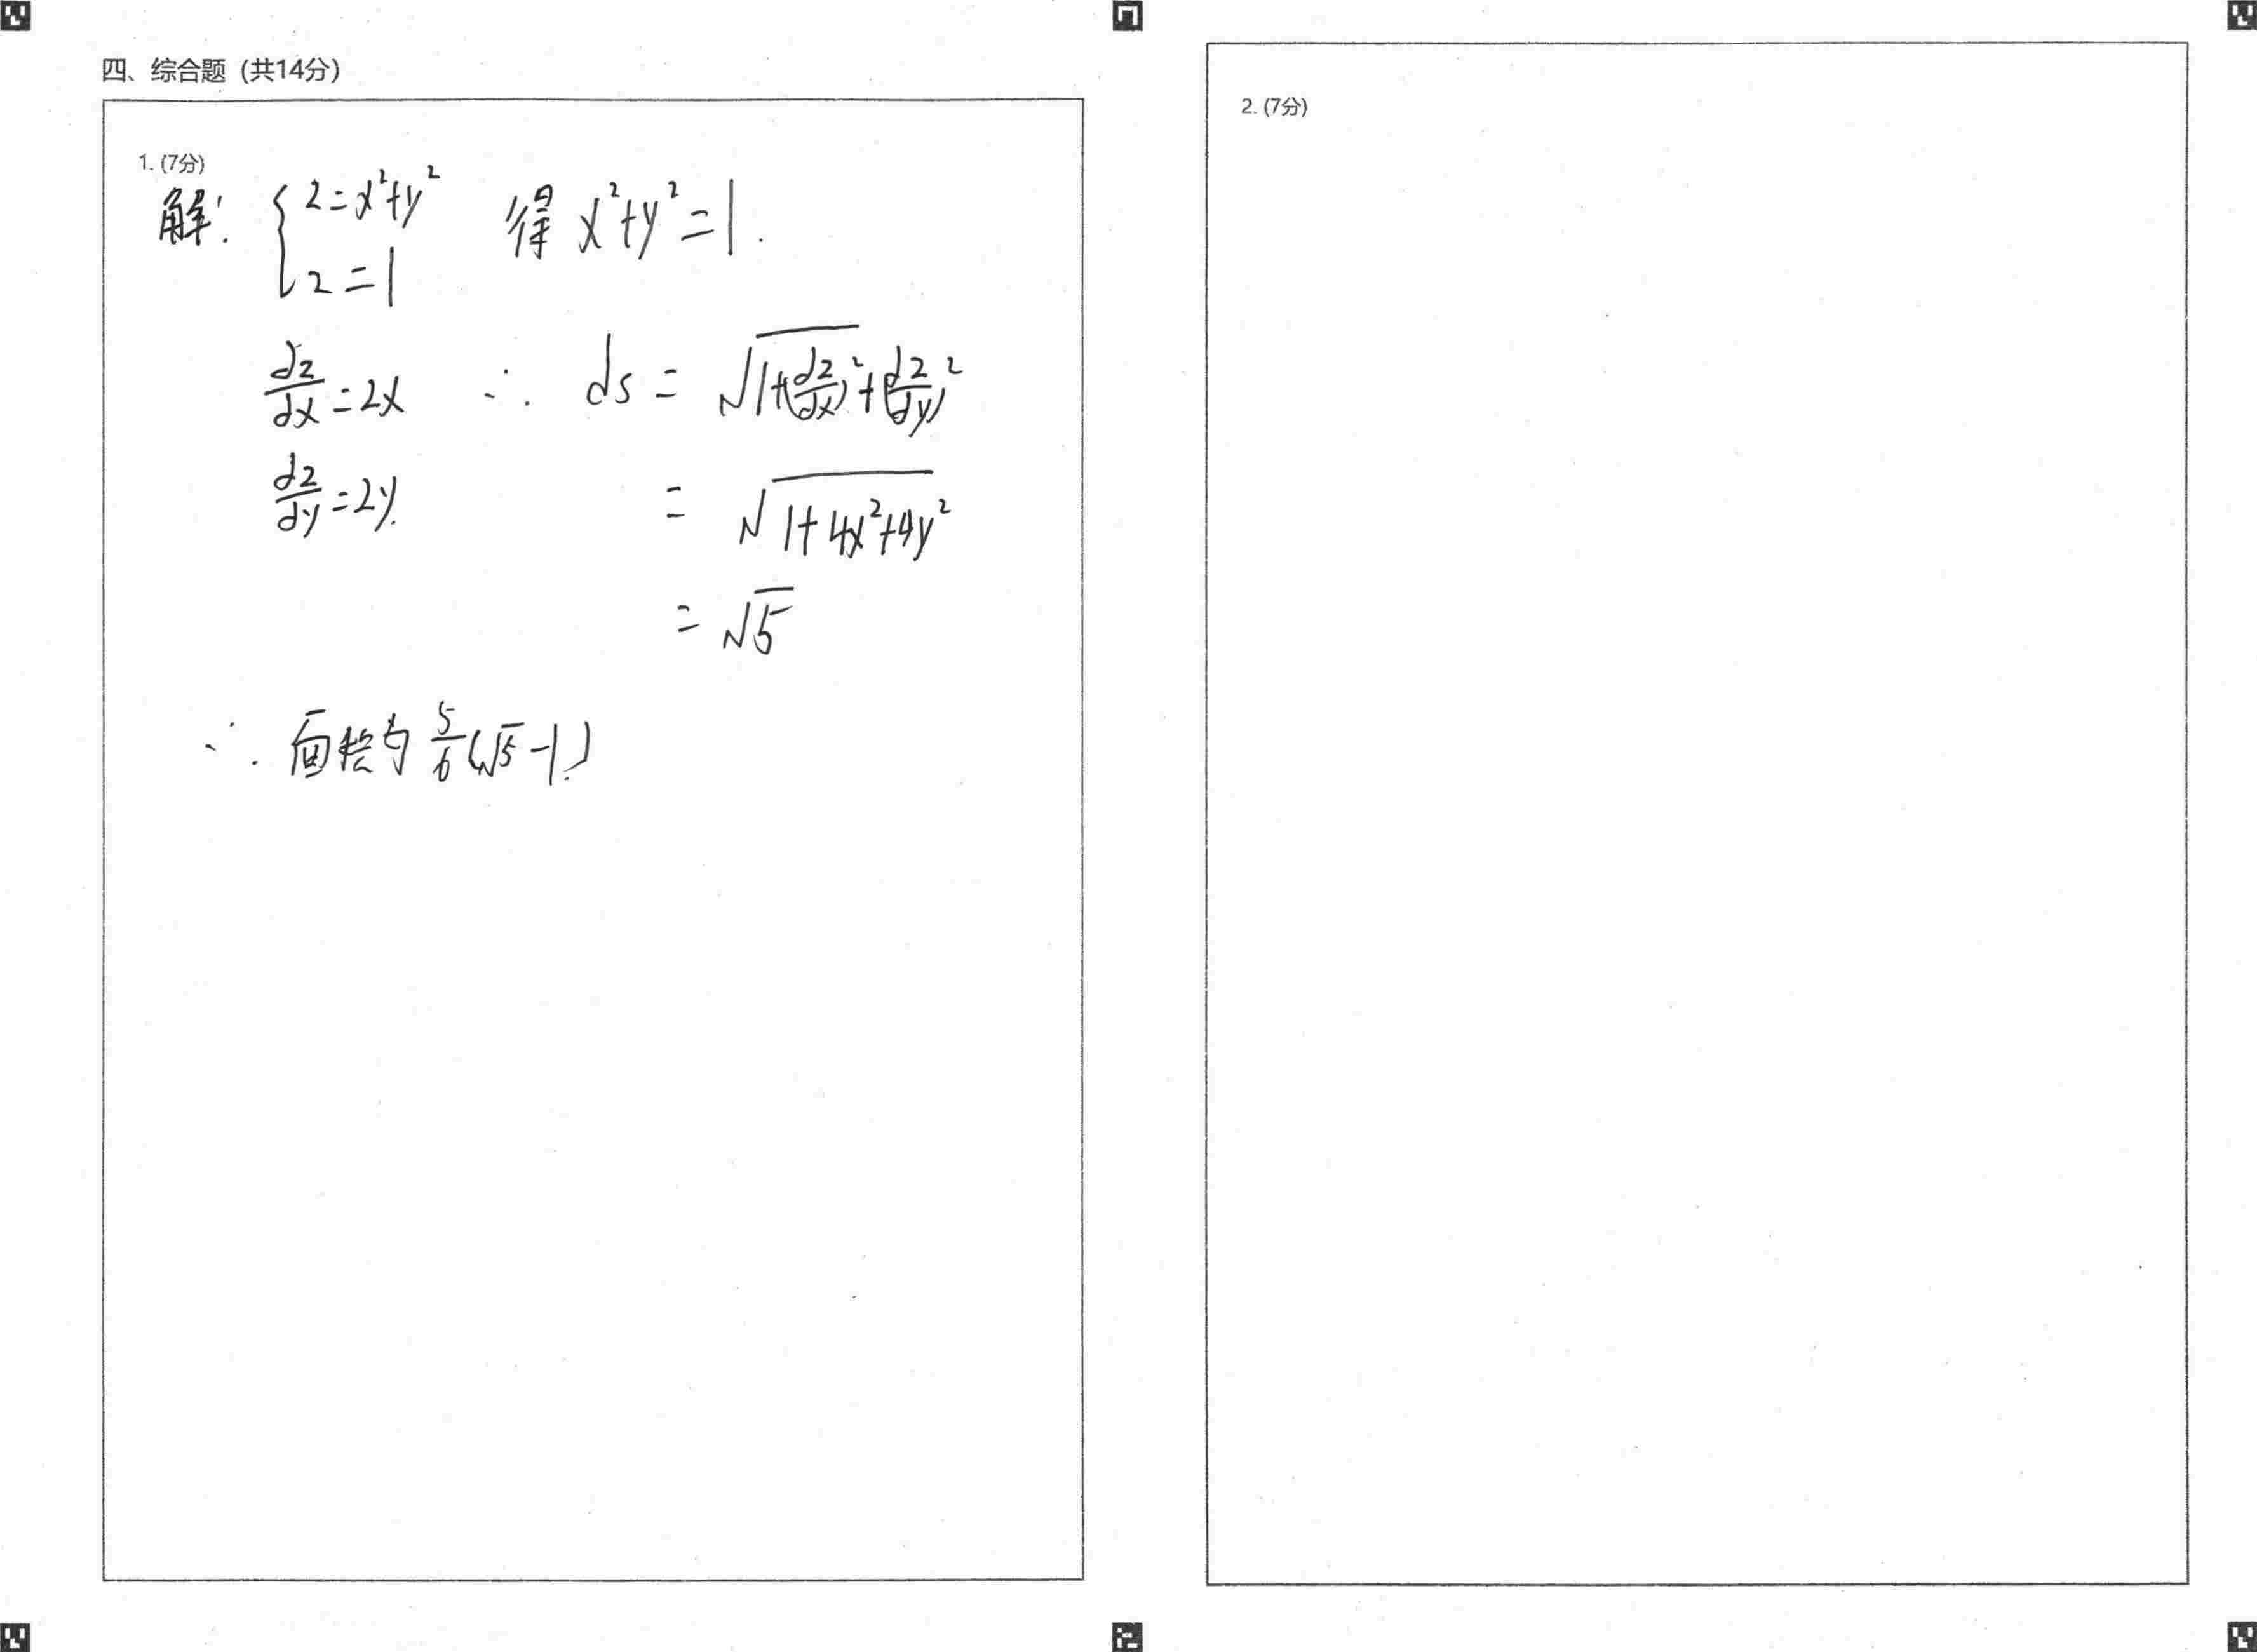 四、综合题 (共14分)
1. (7分)
解: { z=x²+y² 得 x²+y²=1.
z=1
dz/dx=2x ∴ ds = √1+(dz/dx)²+(dz/dy)²
dz/dy=2y. = √1+4x²+4y²
= √5
∴ 面积为 5/6(√5-1.)
2. (7分)